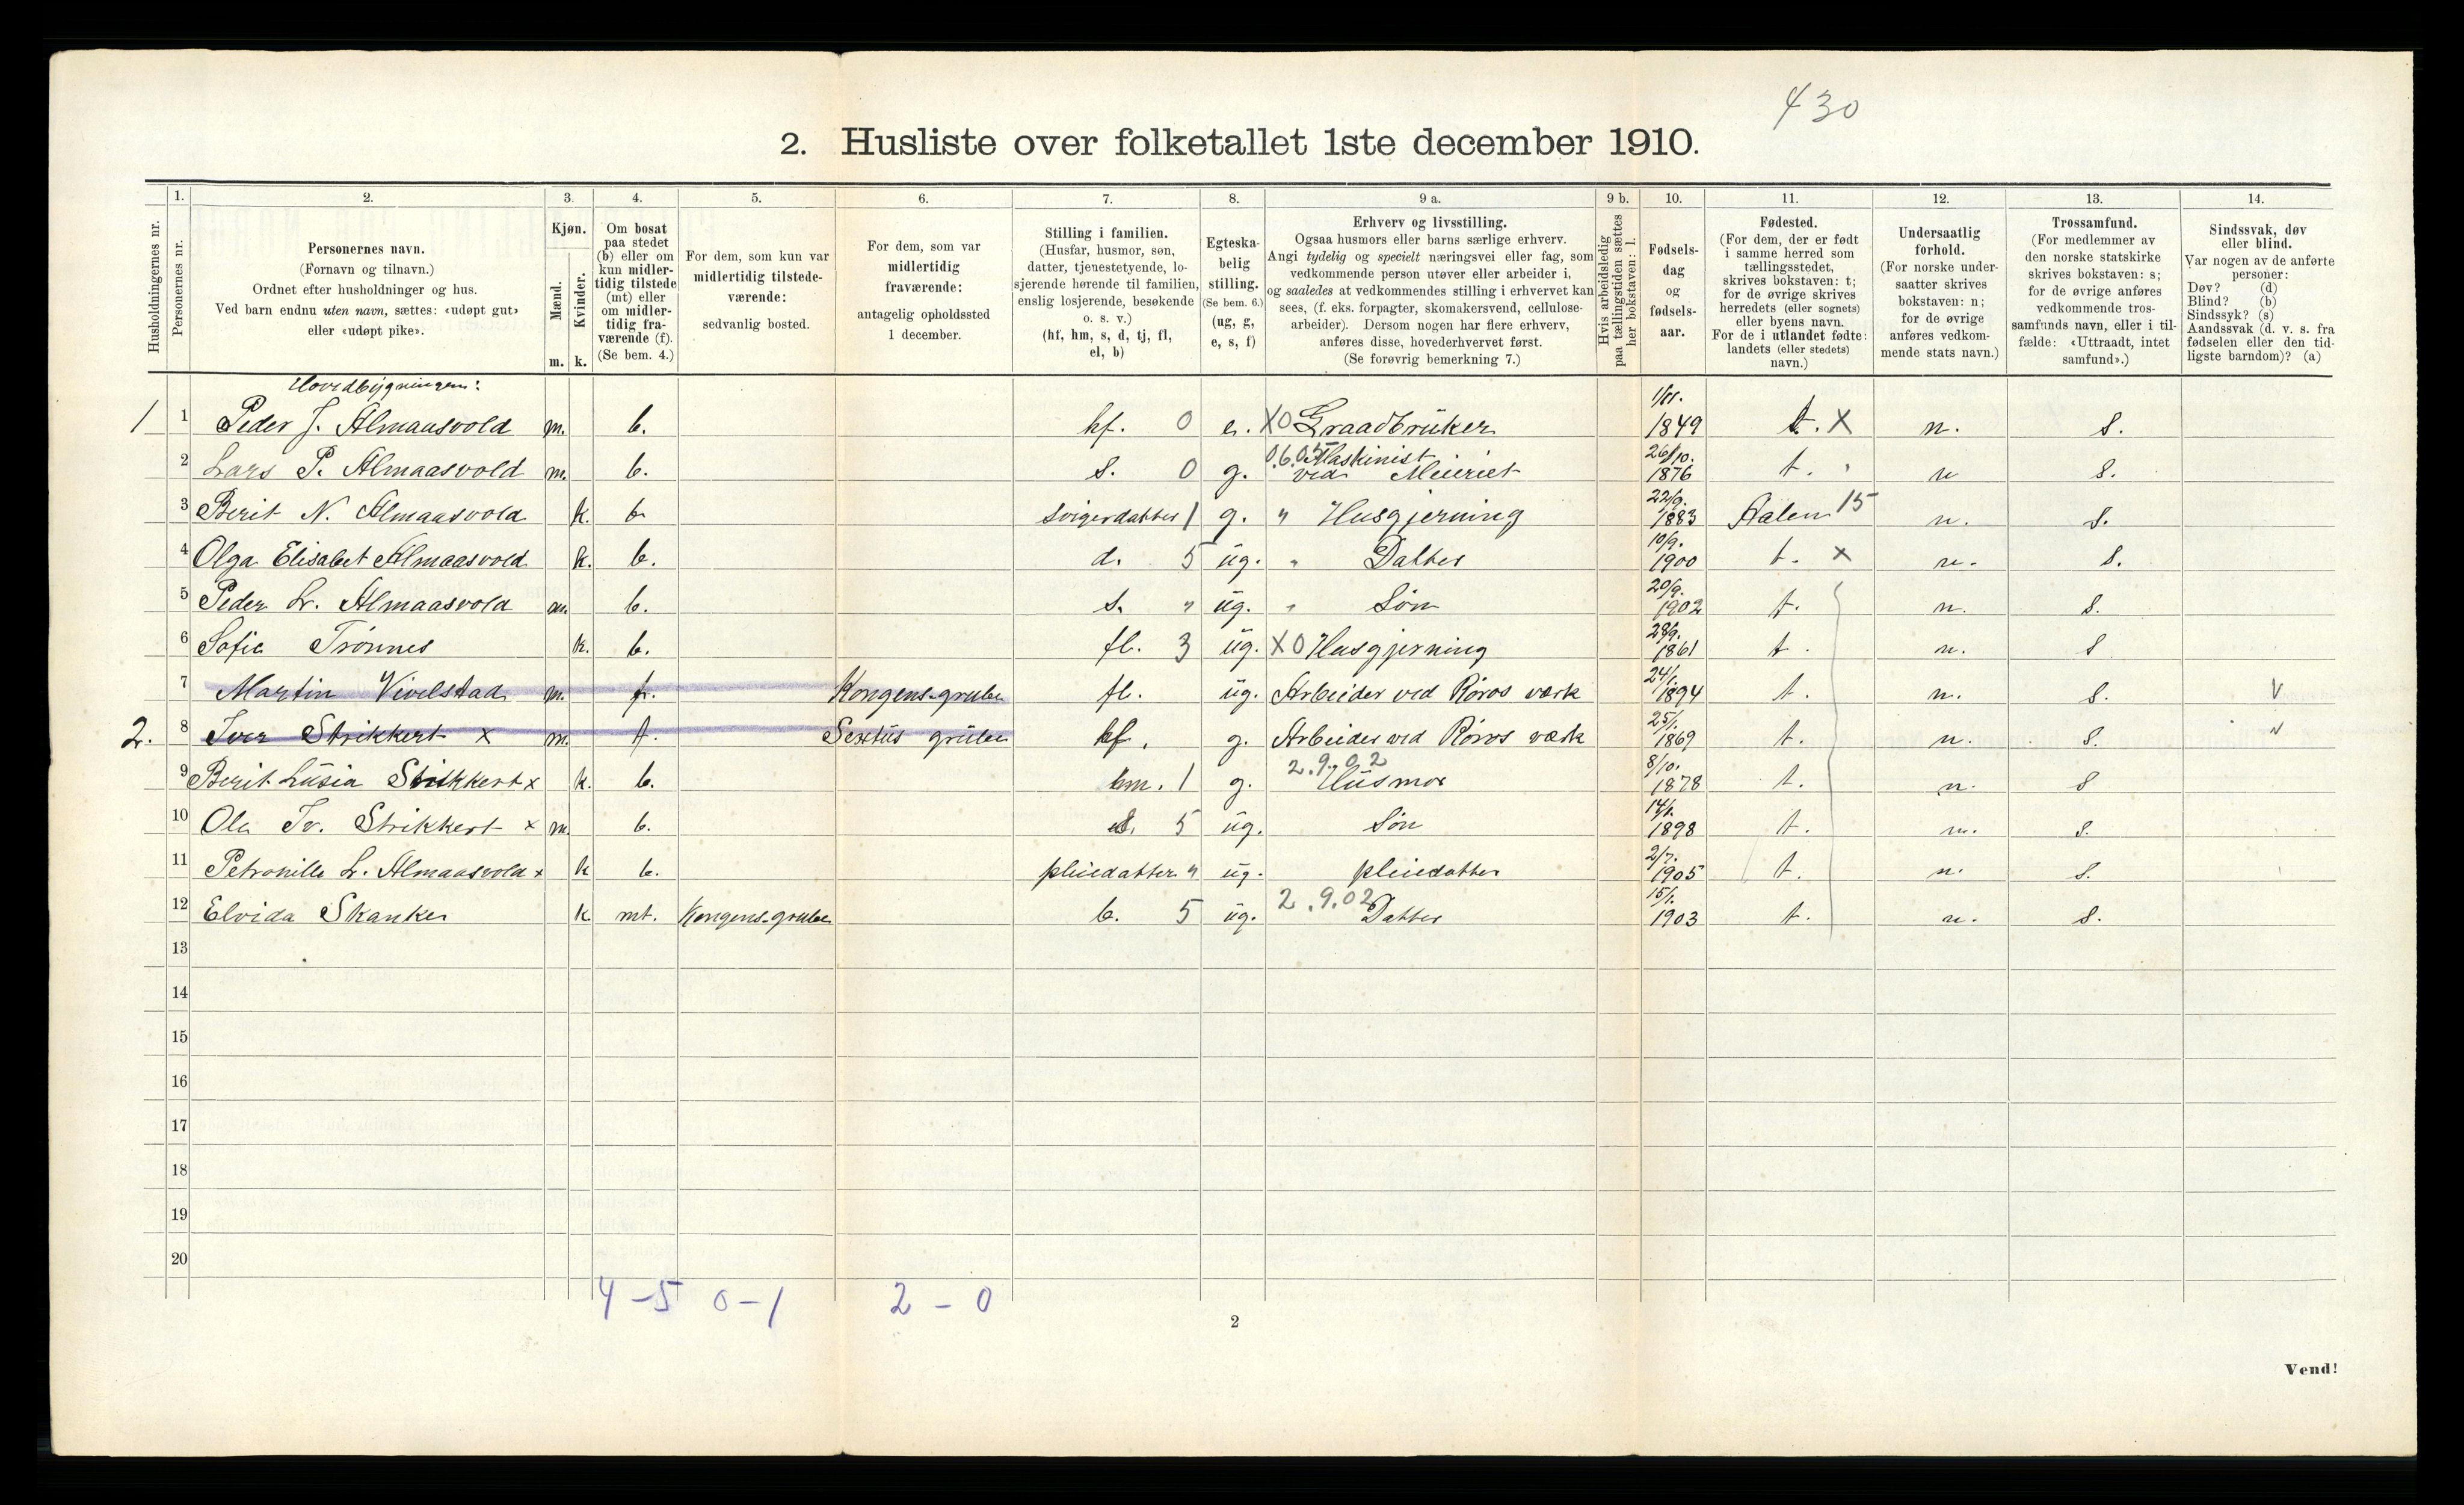 430
2. Husliste over folketallet 1ste december 1910.
Husholdningernes nr.
1.
Personernes nr.
2.
Personernes navn.
(Fornavn og tilnavn.)
Ordnet efter husholdninger og hus.
Ved barn endnu uten navn, sættes: «udøpt gut»
eller «udøpt pike».
3.
Kjøn.
Mænd.
Kvinder.
m. k.
4.
Om bosat
paa stedet
(b) eller om
kun midler-
tidig tilstede
(mt) eller
om midler-
tidig fra-
værende (f).
(Se bem. 4.)
5.
For dem, som kun var
midlertidig tilstede-
værende:
sedvanlig bosted.
6.
For dem, som var
midlertidig
fraværende:
antagelig opholdssted
1 december.
7.
Stilling i familien.
(Husfar, husmor, søn,
datter, tjenestetyende, lo-
sjerende hørende til familien,
enslig losjerende, besøkende
o. s. v.)
(hf, hm, s, d, tj, fl,
el, b)
8.
Egteska-
belig
stilling.
(Se bem. 6.)
(ug, g,
e, s, f)
9 a.
Erhverv og livsstilling.
Ogsaa husmors eller barns særlige erhverv.
Angi tydelig og specielt næringsvei eller fag, som
vedkommende person utøver eller arbeider i,
og saaledes at vedkommendes stilling i erhvervet kan
sees, (f. eks. forpagter, skomakersvend, cellulose-
arbeider). Dersom nogen har flere erhverv,
anføres disse, hovederhvervet først.
(Se forøvrig bemerkning 7.)
9 b.
Hvis arbeidsledig
paa tællingstiden sættes
her bokstaven: l.
10.
Fødsels-
dag
og
fødsels-
aar.
11.
Fødested.
(For dem, der er født
i samme herred som
tællingsstedet,
skrives bokstaven: t;
for de øvrige skrives
herredets (eller sognets)
eller byens navn.
For de i utlandet fødte:
landets (eller stedets)
navn.)
12.
Undersaatlig
forhold.
(For norske under-
saatter skrives
bokstaven: n;
for de øvrige
anføres vedkom-
mende stats navn.)
13.
Trossamfund.
(For medlemmer av
den norske statskirke
skrives bokstaven: s;
for de øvrige anføres
vedkommende tros-
samfunds navn, eller i til-
fælde: «Uttraadt, intet
samfund».)
14.
Sindssvak, døv
eller blind.
Var nogen av de anførte
personer:
Døv? (d)
Blind? (b)
Sindssyk? (s)
Aandssvak (d. v. s. fra
fødselen eller den tid-
ligste barndom)? (a)
Hovedbygningen:
1 1 Peder J. Almaasvold m. b. hf. 0 e. X0 Graadbrüker 1/11. 1849 t. X n. s.
2 Lars P. Almaasvold m. b. s. 0 g. 0.6.05 Maskinist ved Meieriet 26/10. 1876 t. n s.
3 Berit N. Almaasvold k. b svigerdatter 1 g. " Husgjerning 22/9. 1883 Aalen 15 n. s.
4 Olga Elisabet Almaasvold k. b. d. 5 üg. " Datter 10/9. 1900 t. x n. s.
5 Peder L. Almaasvold m. b. s. " üg. " Søn 20/9. 1902 t. n. s.
6 Sofie Trønnes k. b. fl. 3 üg. X0 Husgjerning 28/9. 1861 t. n. s
7 Martin Vivelstad m. f. Kongens-grube fl. üg. Arbeider ved Røros værk 24/1. 1894 t. n. s. V
2. 8 Iver Strikkert x m. f. Sextus grübe hf. g. Arbeider ved Røros værk 25/1. 1869 t. n. s. v
9 Berit Lüsia Strikkert x k. b. hm. 1 g. 2.9.02 Hüsmor 8/10. 1878 t. n. s
10 Ole Iv. Strikkert x m. b. s. 5 üg. Søn 14/1. 1898 t. n. s.
11 Petronille L. Almaasvold x k b. pleiedatter " üg. pleiedatter 2/7. 1905 t. n. s.
12 Elvida Skanker k mt. Kongens-grube b. 5 üg. 2.9.02 Datter 15/1. 1903 t. n. s.
13
14
15
16
17
18
19
20
4 - 5 0 - 1 2 - 0
2
Vend!